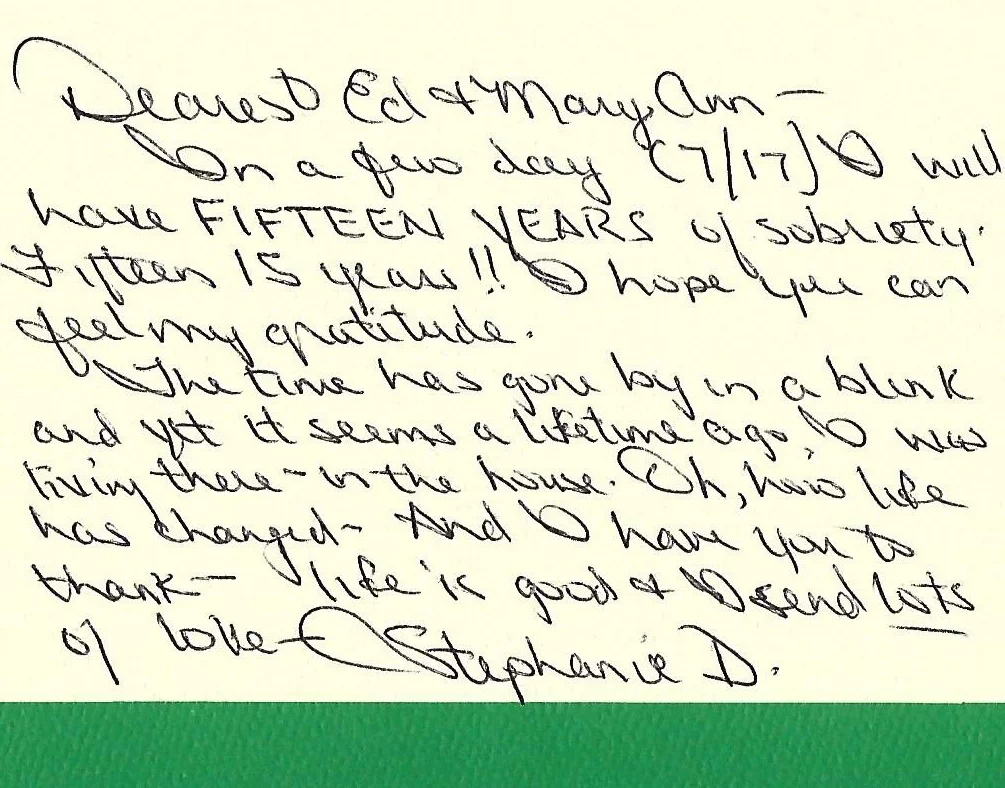 Dearest Ed & Mary Ann —
In a few day (7/17) I will
have FIFTEEN YEARS of sobriety.
Fifteen 15 years!! I hope you can
feel my gratitude.
The time has gone by in a blink
and yet it seems a lifetime ago, I was
living there - in the house. Oh, how life
has changed - And I have you to
thank — life is good & I send lots
of love — Stephanie D.